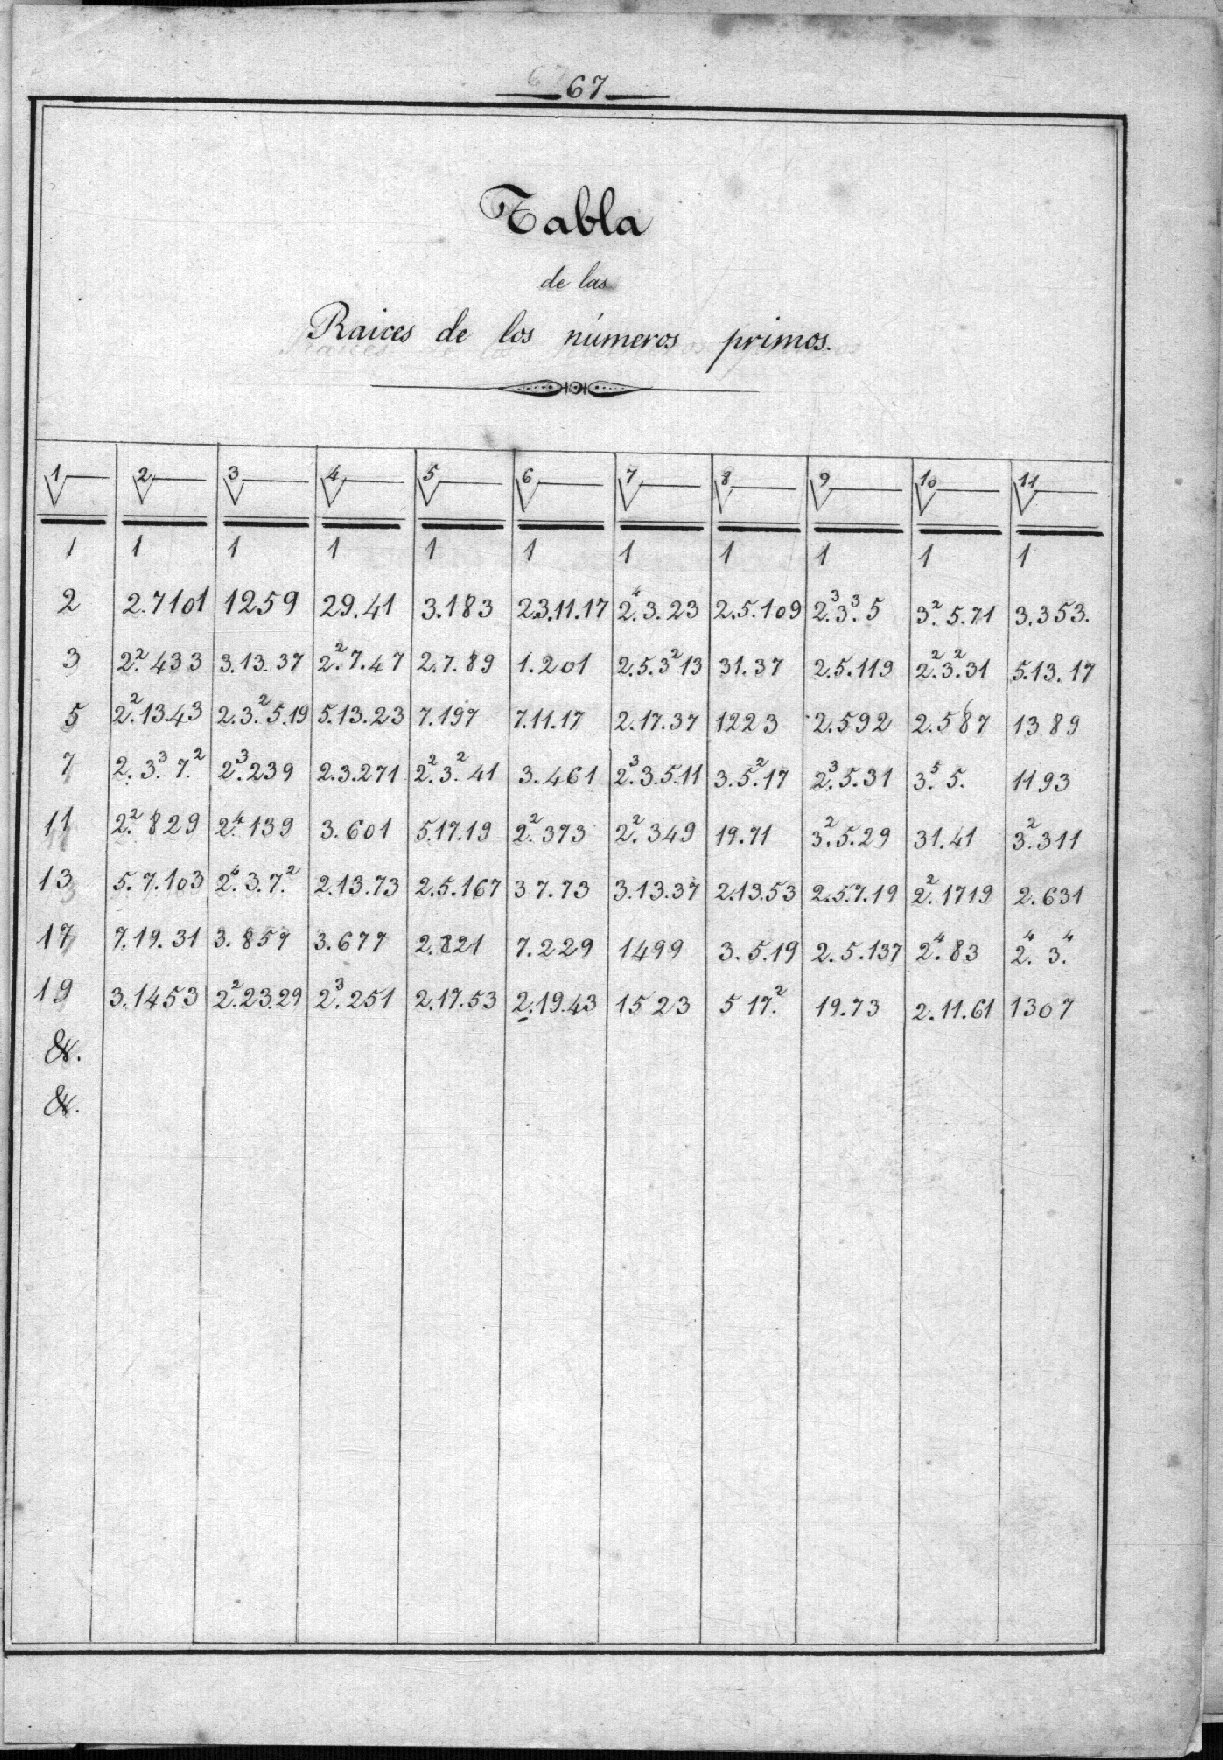 67
Tabla
de las
Raices de los números primos.
1√ 2√ 3√ 4√ 5√ 6√ 7√ 8√ 9√ 10√ 11√
1 1 1 1 1 1 1 1 1 1 1
2 2.7101 1259 29.41 3.183 2.3.11.17 2⁴.3.23 2.5.109 2³.3³.5 3².5.71 3.353.
3 2².433 3.13.37 2².7.47 2.7.89 1.201 2.5.3²13 31.37 2.5.119 2².3².31 5.13.17
5 2².13.43 2.3².5.19 5.13.23 7.197 7.11.17 2.17.37 1223 2.592 2.587 1389
7 2.3³.7² 2³.239 2.3.271 2².3².41 3.461 2³.3.5.11 3.5².17 2³.5.31 3⁵.5. 1193
11 2².829 2⁴.139 3.601 5.17.19 2².373 2².349 19.71 3².5.29 31.41 3².311
13 5.7.103 2⁴.3.7.² 2.13.73 2.5.167 37.73 3.13.37 2.13.53 2.5.7.19 2².1719 2.631
17 7.19.31 3.857 3.677 2.821 7.229 1499 3.5.19 2.5.137 2⁴.83 2⁴.3.⁴
19 3.1453 2².23.29 2³.251 2.17.53 2.19.43 1523 5 17.² 19.73 2.11.61 1307
&.
&.